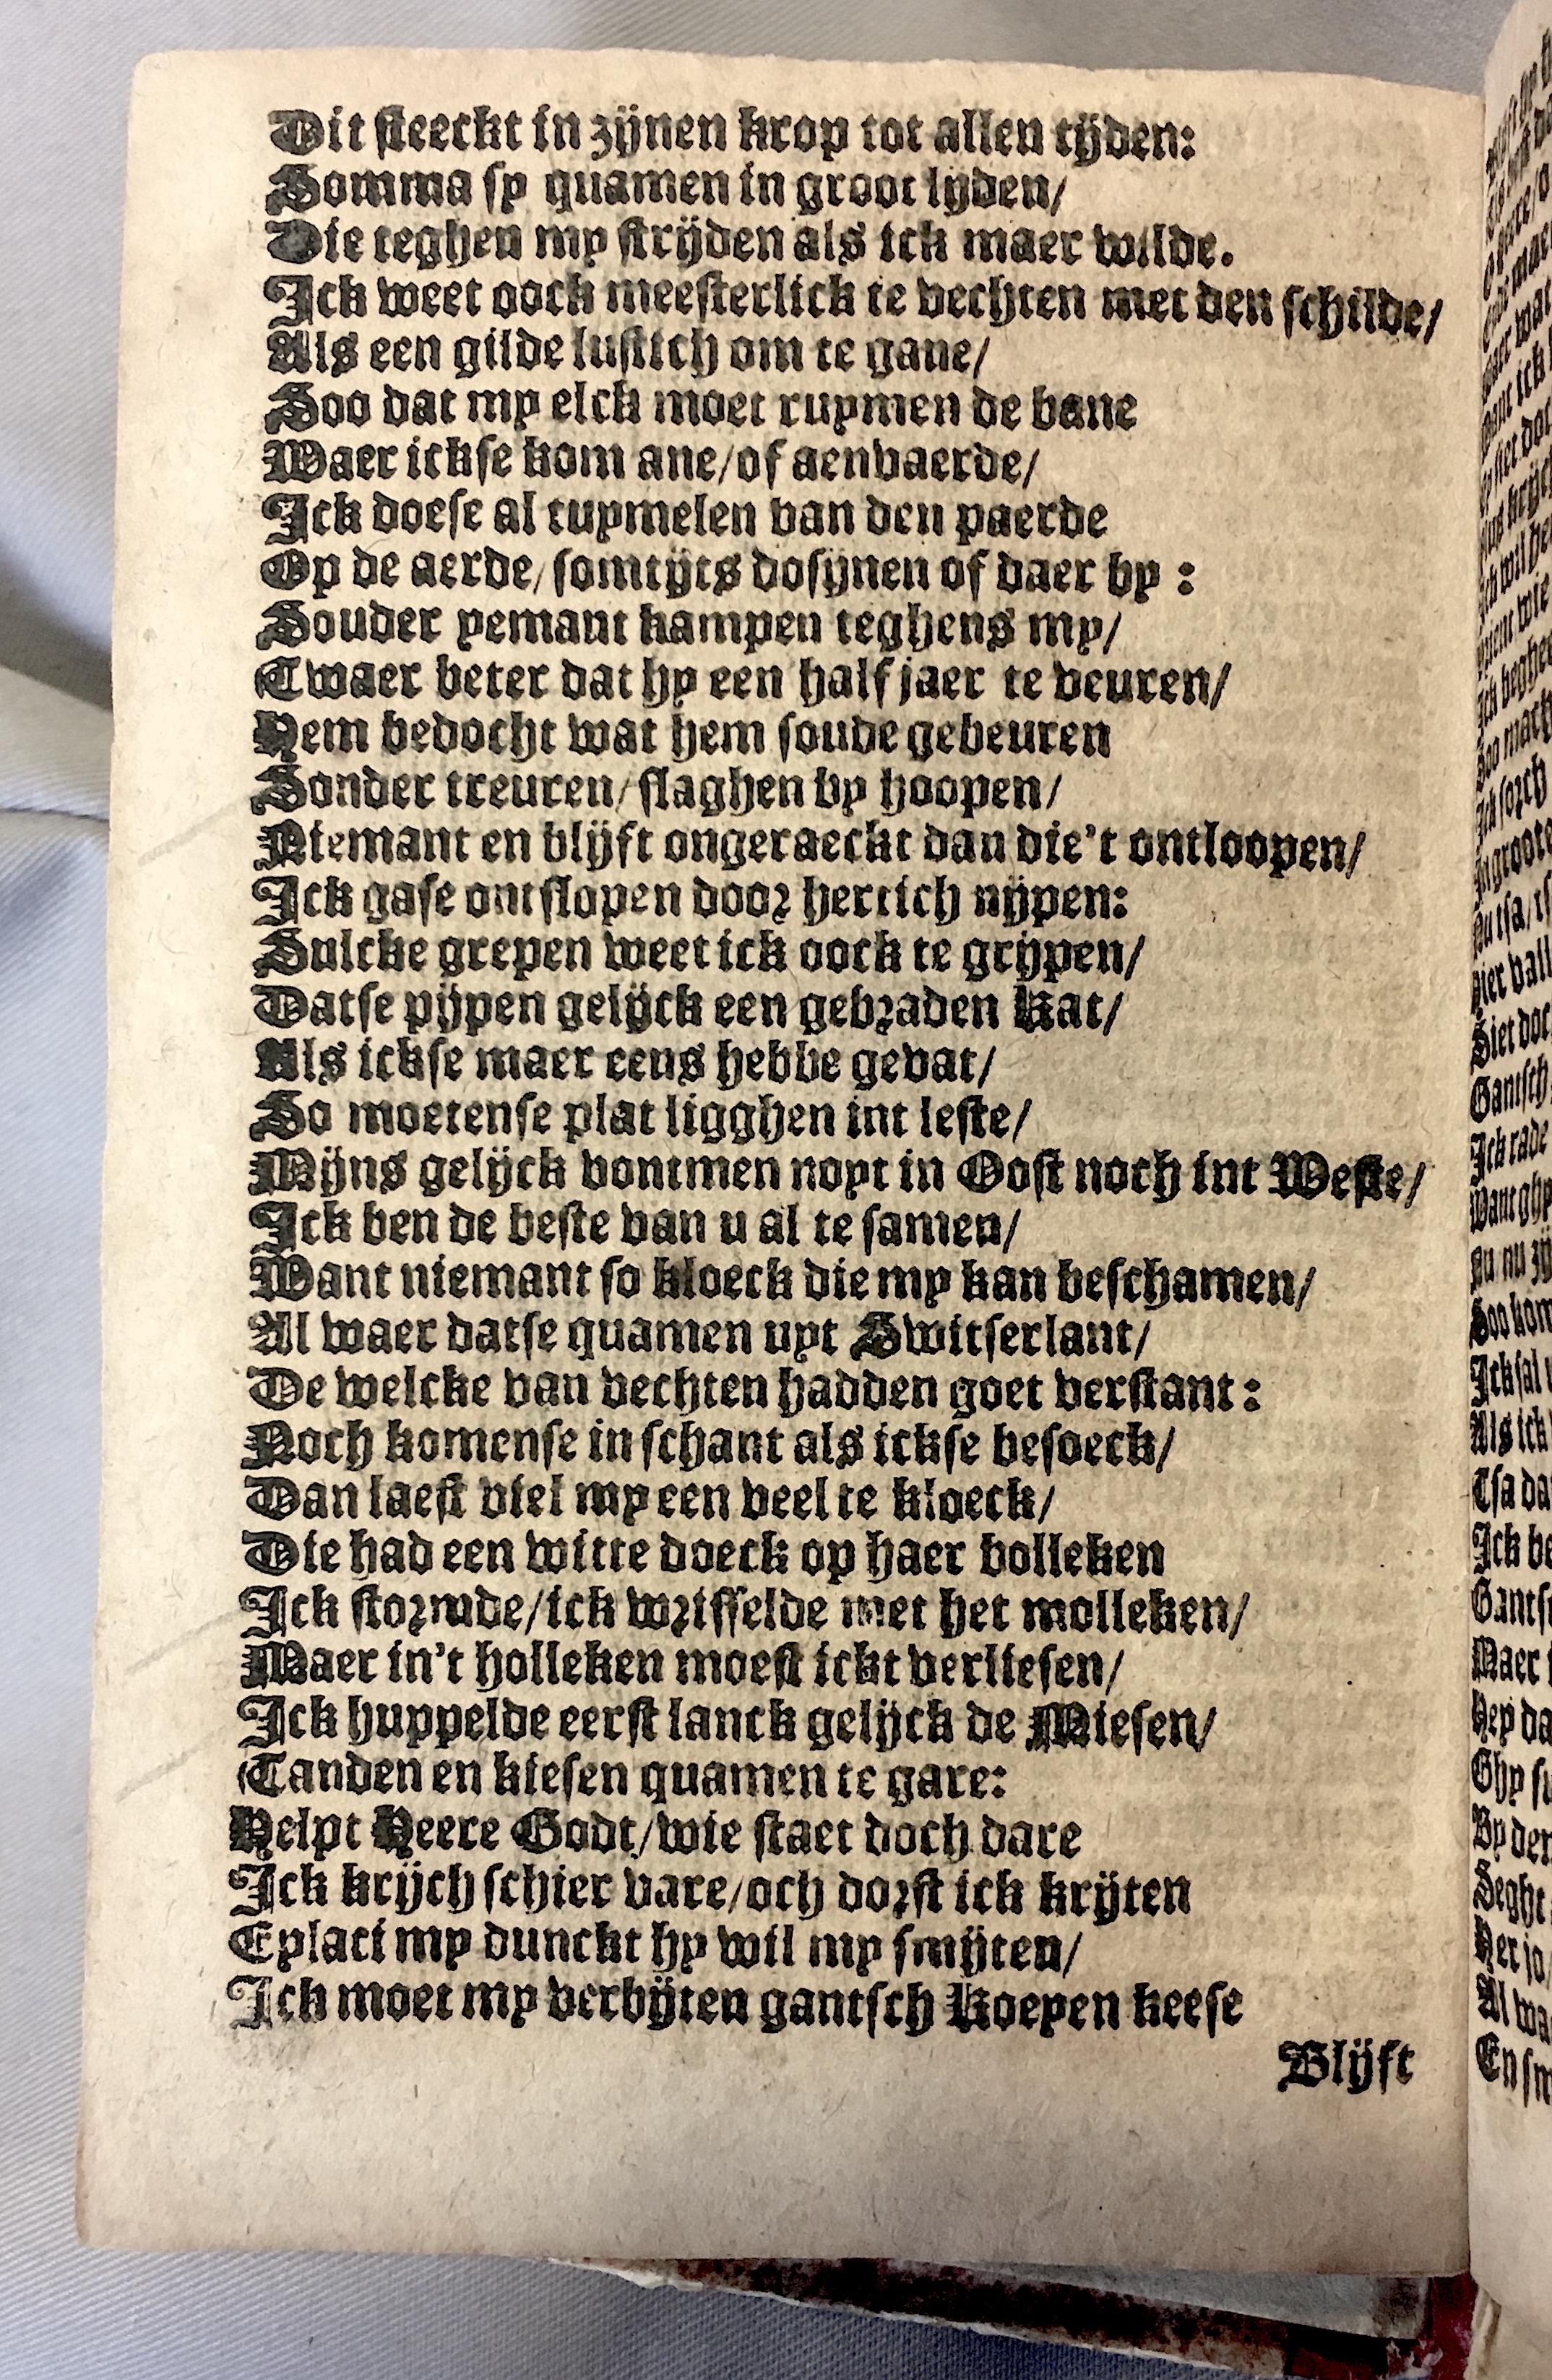 Dit steeckt in zijnen krop tot allen tijden:
Somma sy quamen in groot lijden/
Die teghen my strijden als ick maer wilde.
Ick weet oock meesterlick te vechten met den schilde/
Als een gilde lustich om te gane/
Soo dat my elck moet ruymen de bane
Waer ickse kom ane/of aenvaerde/
Ick doese al tuymelen van den paerde
Op de aerde/somtijts dosijnen of daer by:
Souder yemant kampen teghens my/
Twaer beter dat hy een half jaer te veuren/
Hem bedocht wat hem soude gebeuren
Sonder treuren/slaghen by hoopen/
Niemant en blijft ongeraeckt dan die't ontloopen/
Ick gase ontslopen door hertich nijpen:
Sulcke grepen weet ick oock te grijpen/
Datse pijpen gelijck een gebraden Kat/
Als ickse maer eens hebbe gevat/
So moetense plat ligghen int leste/
Mijns gelijck vontmen noyt in Oost noch int Weste/
Ick ben de beste van u al te samen/
Want niemant so kloeck die my kan beschamen/
Al waer datse quamen uyt Switserlant/
De welcke van vechten hadden goet verstant:
Noch komense in schant als ickse besoeck/
Dan laest viel my een veel te kloeck/
Die had een witte doeck op haer bolleken
Ick stormde/ick wriffelde met het molleken/
Maer in't holleken moest ickt verliesen/
Ick huppelde eerst lanck gelijck de Miesen/
Tanden en kiesen quamen te gare:
Helpt Heere Godt/wie staet doch dare
Ick krijch schier vare/och dorst ick krijten
Eylaci my dunckt hy wil my smijten/
Ick moet my verbijten gantsch Koeyen keese
Blijft